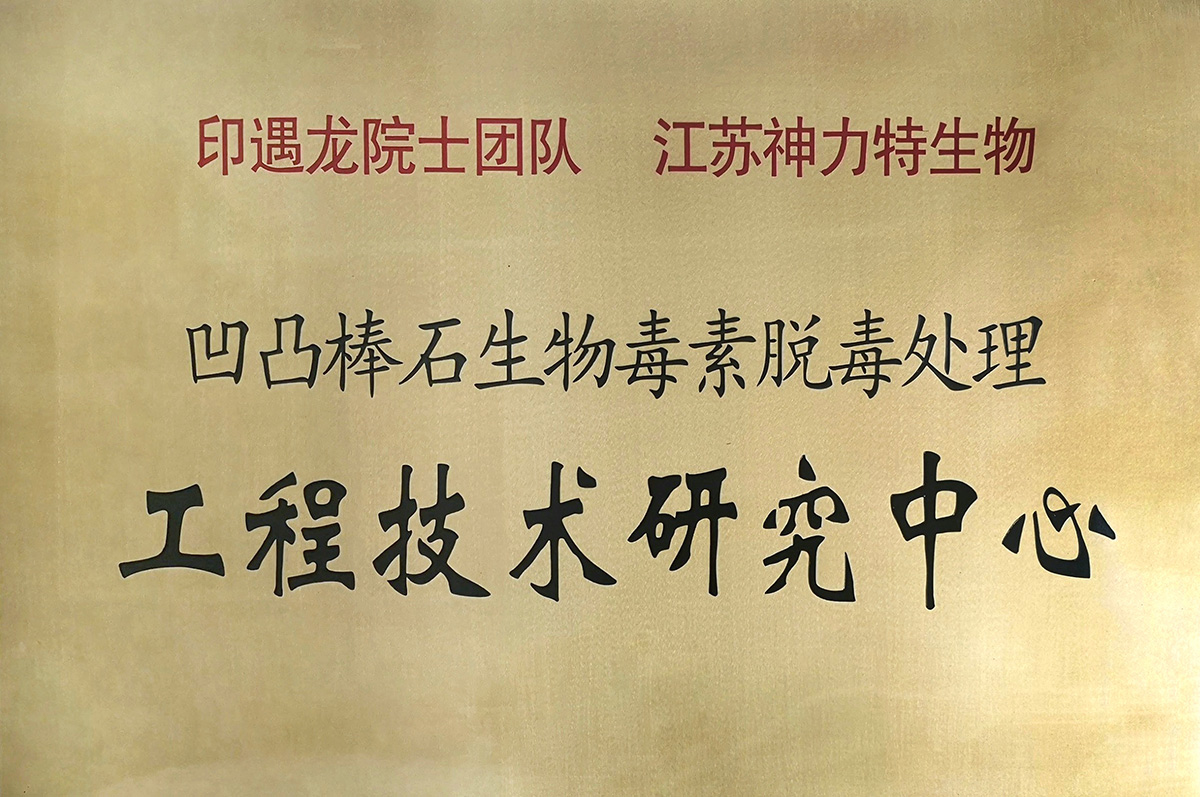 印遇龙院士团队 江苏神力特生物
凹凸棒石生物毒素脱毒处理
工程技术研究中心